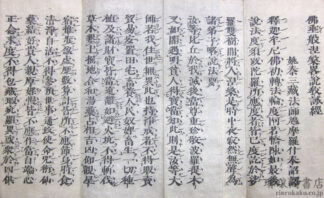 佛垂般涅槃略説教誡經
姚秦三藏法師鳩摩羅什奉詔譯
釋迦牟尼佛初轉法輪度阿若憍陳如最後
説法度須跋陀羅所應度者皆已度訖於娑
羅雙樹間將入涅槃是時中夜寂然無聲爲
諸弟子略説法要
汝等比丘於我滅後當尊重珍敬波羅提木
叉如闇遇明貧人得寶當知此則是汝等大
師若我住世無異此也持淨戒者不得販賣
貿易安置田宅畜養人民奴婢畜生一切種
植及諸財寶皆當遠離如避火坑不得斬伐
草木墾土掘地合和湯藥占相吉凶仰觀星
宿推步盈虛曆數算計皆所不應節身時食
清淨自活不得參預世事通致使命呪術仙
藥結好貴人親厚媟慢皆不應作當自端心
正念求度不得苞藏瑕疵顯異惑衆於四供